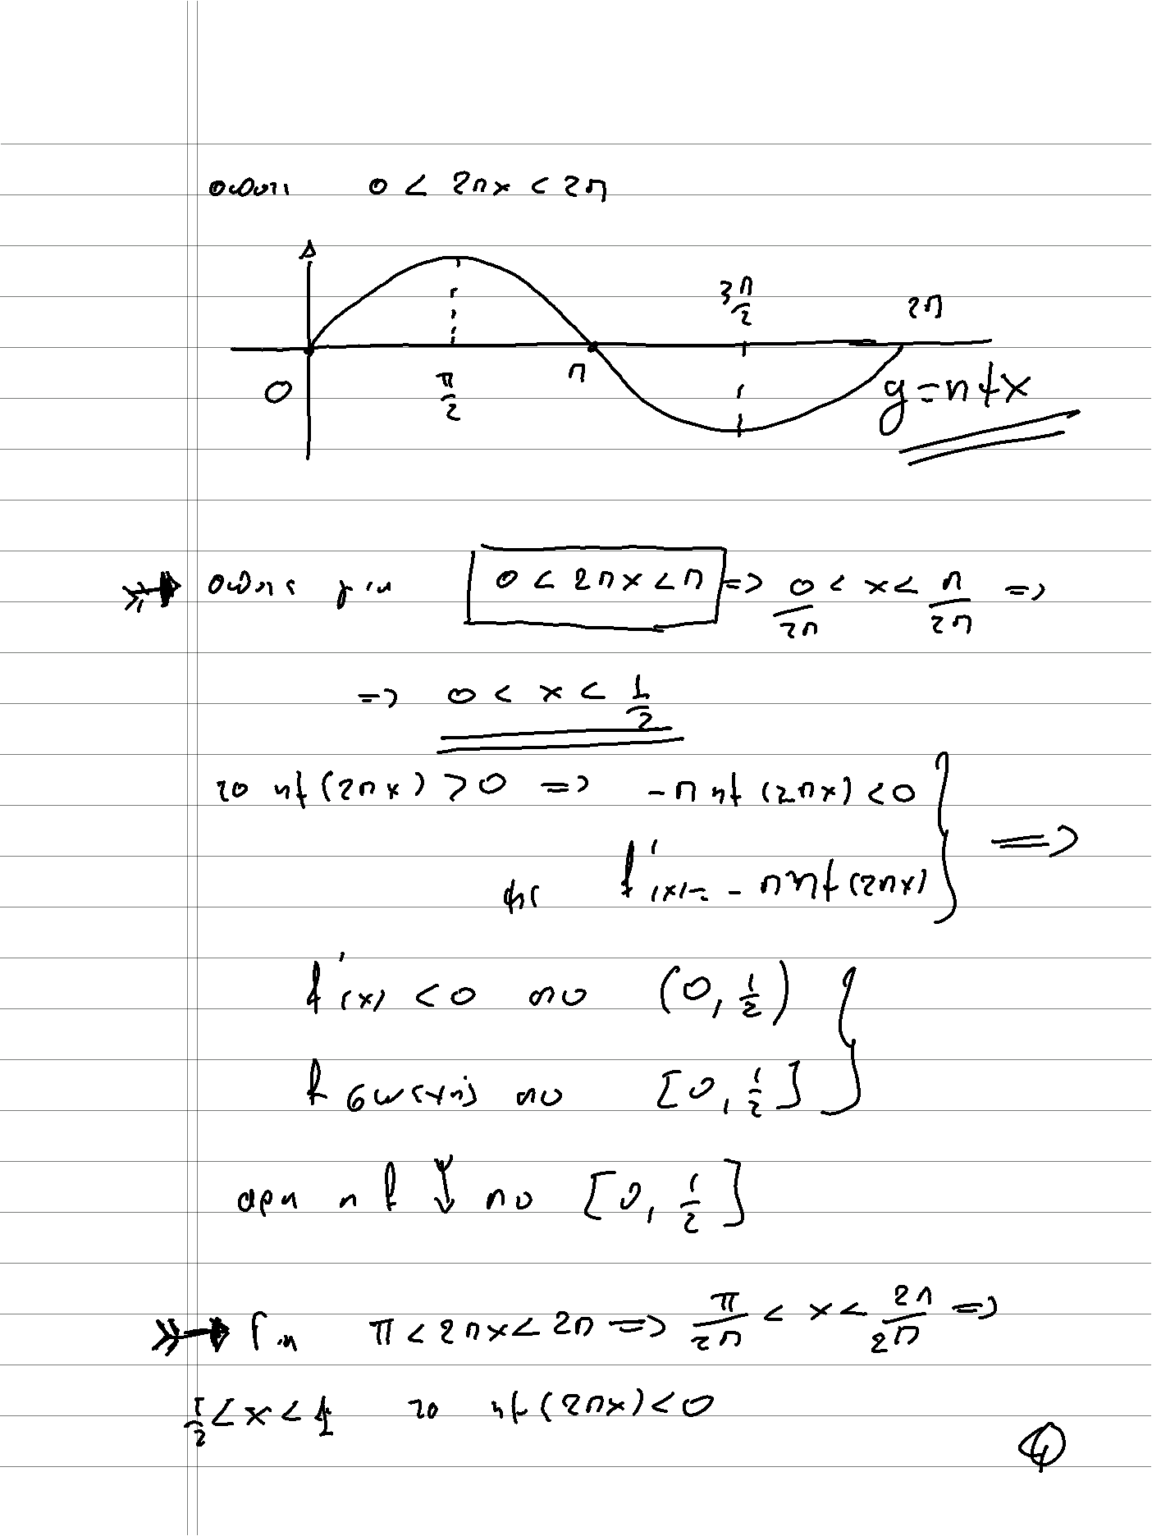 οπότε 0 < 2πx < 2π
3π/2 2π
0 π/2 π y=ημx
οπότε για 0 < 2πx < π => 0/2π < x < π/2π =>
=> 0 < x < 1/2
το ημ(2πx) > 0 => -π ημ(2πx) < 0
και f'(x) = -π ημ(2πx) =>
f'(x) < 0 στο (0, 1/2)
f συνεχής στο [0, 1/2]
άρα η f ↓ στο [0, 1/2]
Για π < 2πx < 2π => π/2π < x < 2π/2π =>
1/2 < x < 1 το ημ(2πx) < 0
4